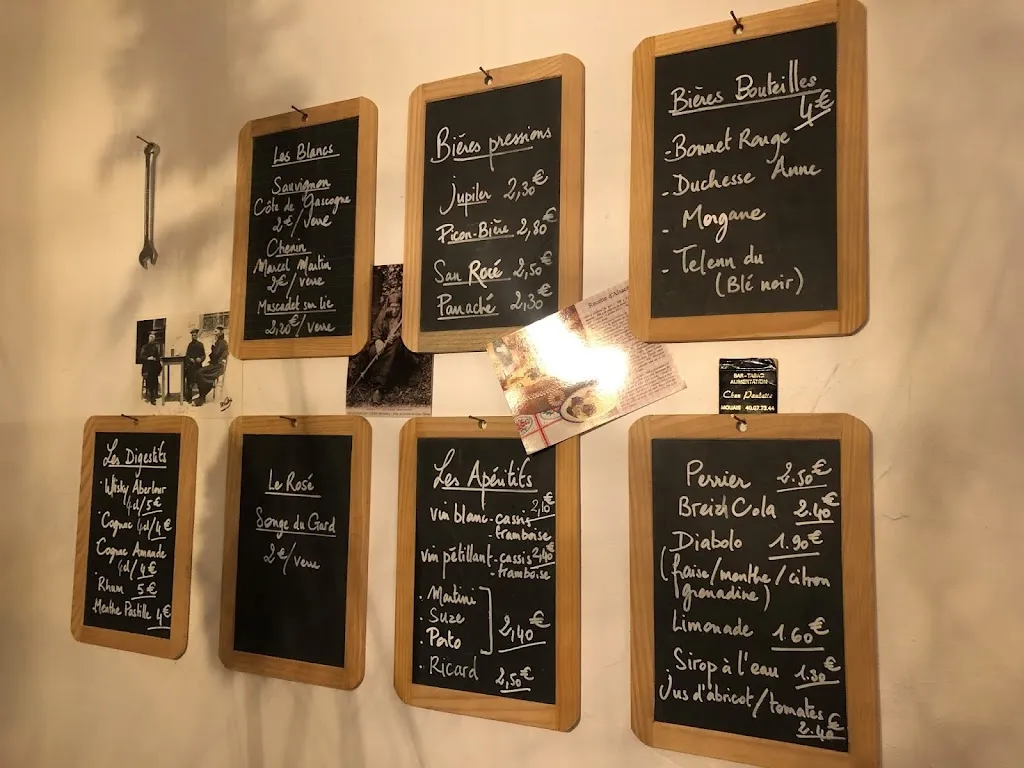 Les Blancs
Sauvignon
Côte de Gascogne
2€/verre
Chenin
Marcel Martin
2€/verre
Muscadet sur Lie
2,20€/verre
Bières pressions
Jupiler 2,30€
Picon-Bière 2,80€
San Rocé 2,50€
Panaché 2,30€
Bières Bouteilles
4€
-Bonnet Rouge
-Duchesse Anne
- Morgane
- Telenn du
(Blé noir)
BAR-TABAC
ALIMENTATION
Chez Paulette
MOUAIS 40.07.73.44
Les Digestifs
·Whisky Aberlour
4cl/5€
·Cognac 4cl/4€
Cognac Amande
4cl/4€
·Rhum 5€
Menthe Pastille 4€
Le Rosé
Songe du Gard
2€/verre
Les Apéritifs
vin blanc-cassis 2,10€
-framboise
vin pétillant-cassis 2,40€
-framboise
· Martini
· Suze
· Porto
2,40€
· Ricard 2,50€
Perrier 2.50€
Breizh Cola 2.40€
Diabolo 1.90€
(fraise/menthe/citron
grenadine)
Limonade 1.60€
·Sirop à l'eau 1.30€
Jus d'abricot/tomates
2.40€